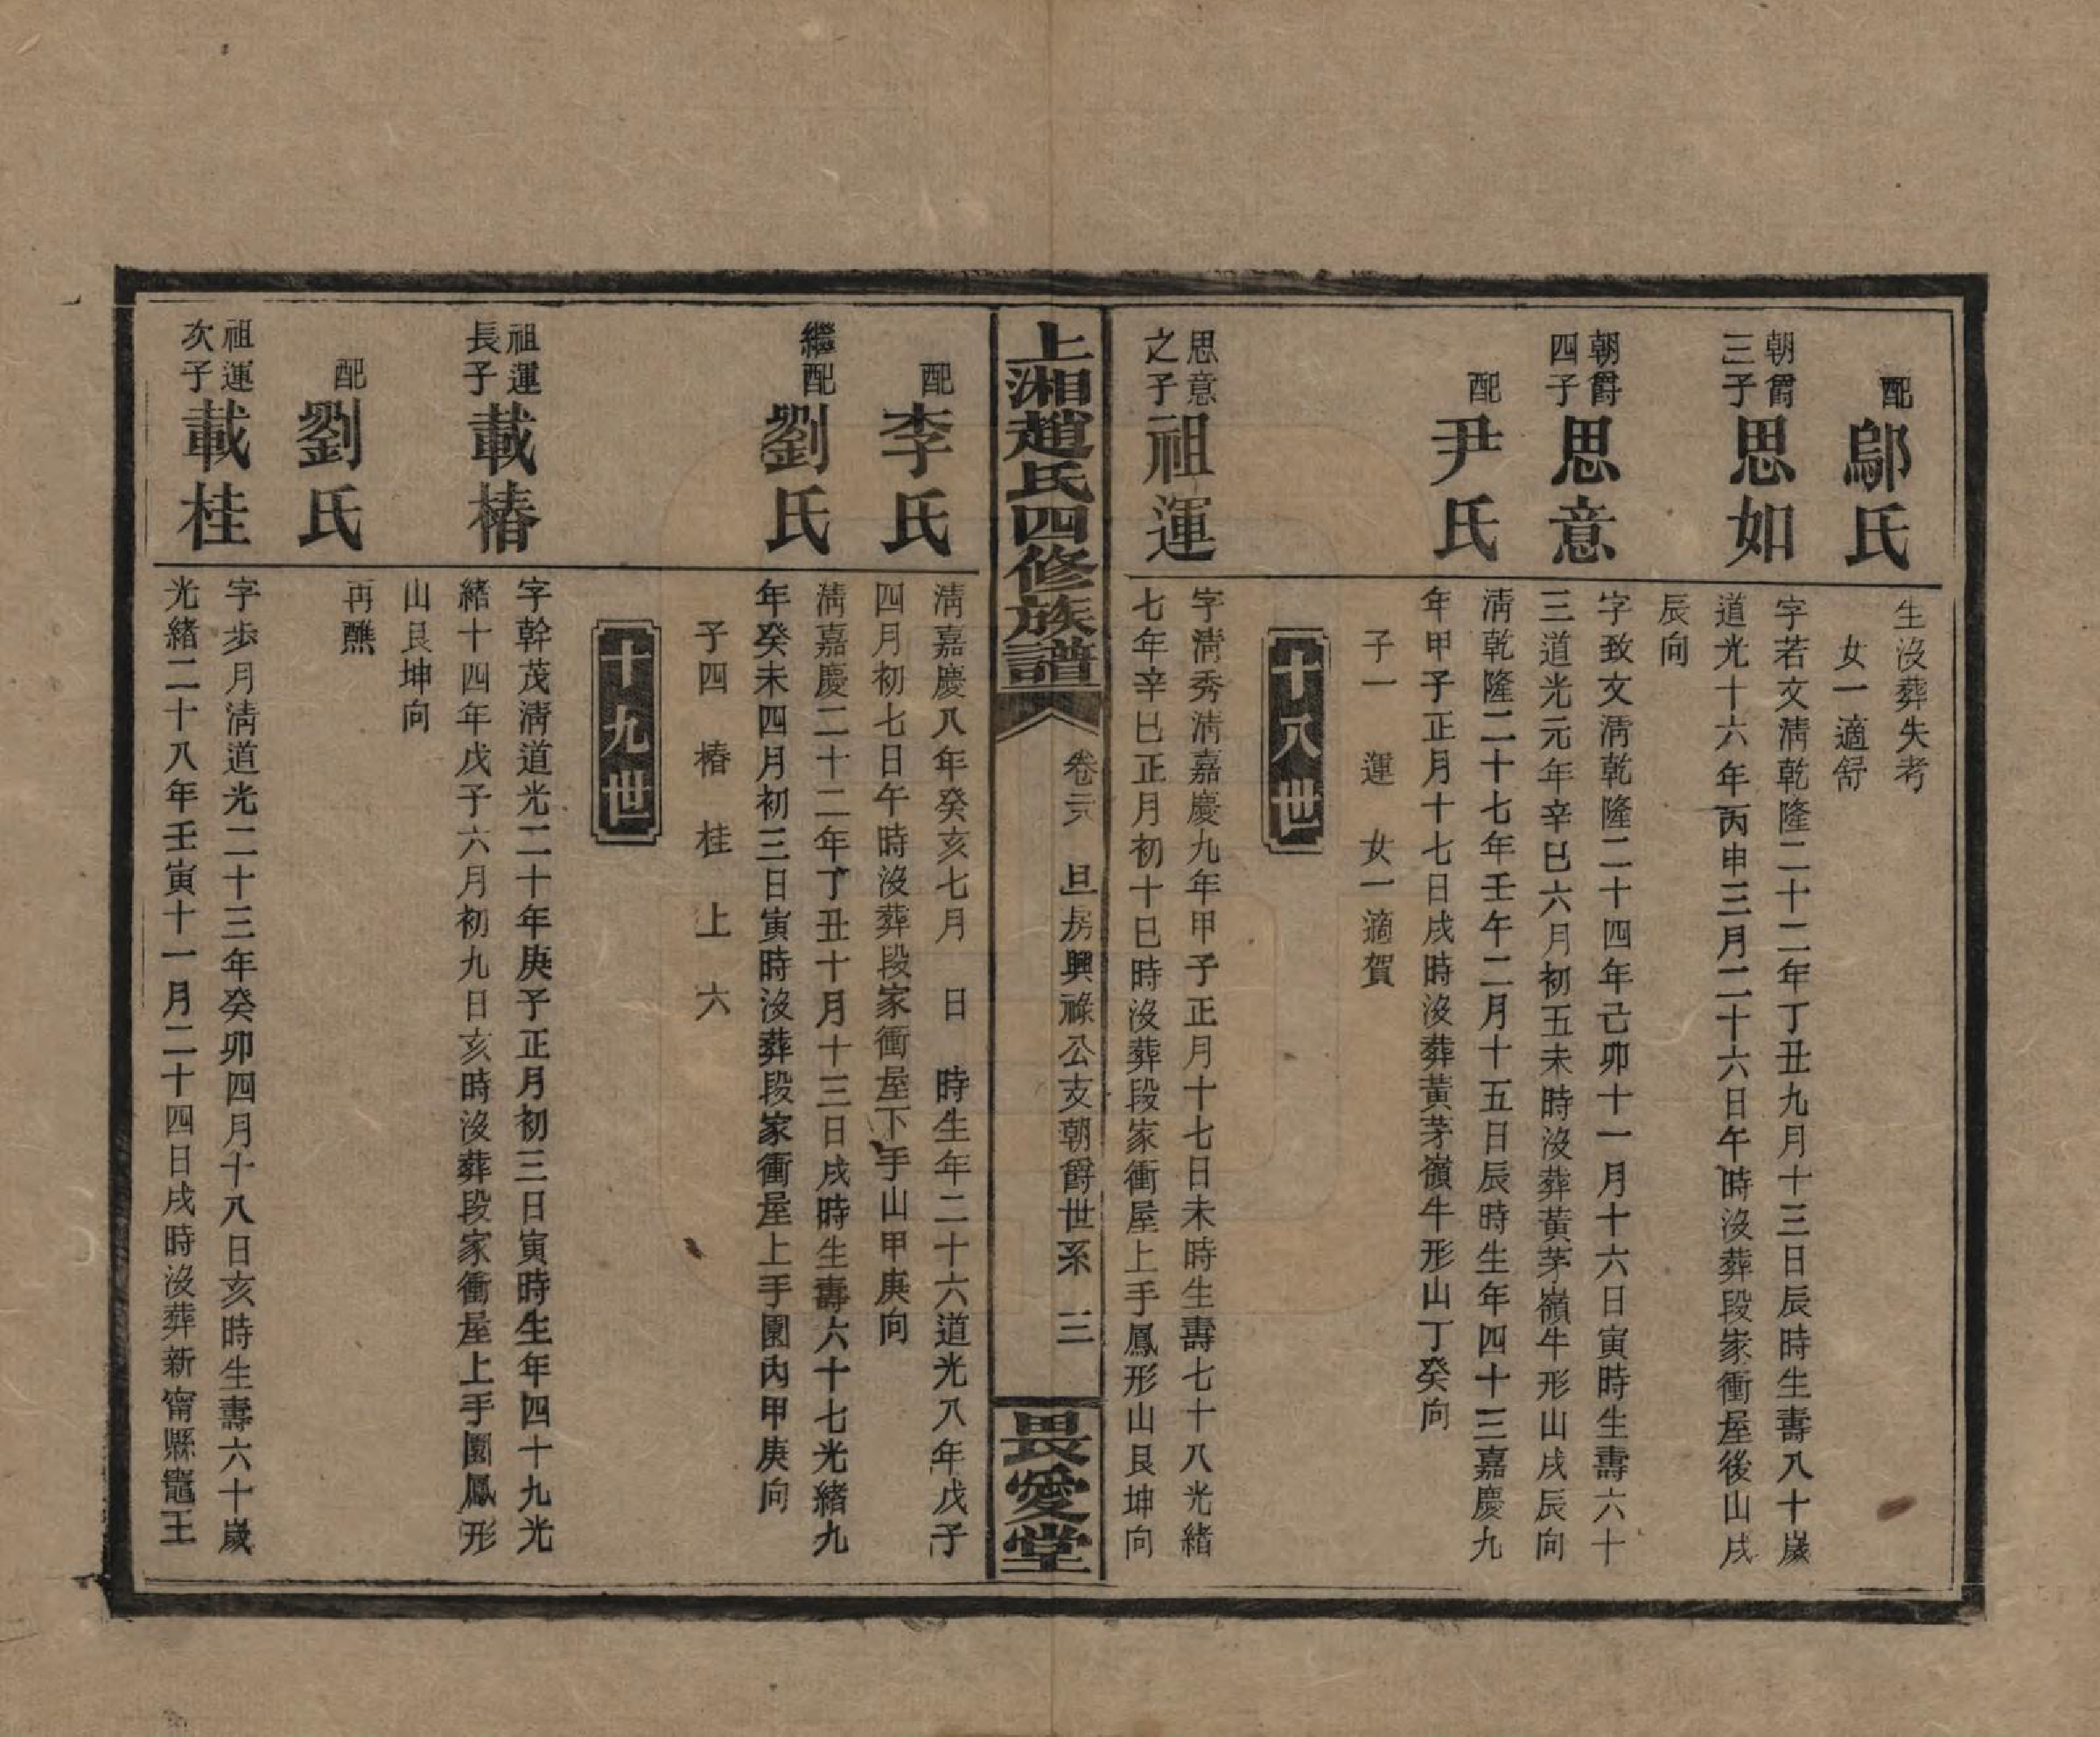 配鄔氏
生沒葬失考
女一適舒
朝爵三子思如
字若文淸乾隆二十二年丁丑九月十三日辰時生壽八十歲
道光十六年丙申三月二十六日午時沒葬段家衝屋後山戌
辰向
朝爵四子思意
字致文淸乾隆二十四年己卯十一月十六日寅時生壽六十
三道光元年辛巳六月初五未時沒葬黃茅嶺牛形山戌辰向
配尹氏
淸乾隆二十七年壬午二月十五日辰時生年四十三嘉慶九
年甲子正月十七日戌時沒葬黃茅嶺牛形山丁癸向
子一 運 女一適賀
十八世
思意之子祖運
字淸秀淸嘉慶九年甲子正月十七日未時生壽七十八光緒
七年辛巳正月初十巳時沒葬段家衝屋上手鳳形山艮坤向
上湘趙氏四修族譜
卷 旦房興祿公支朝爵世系 三
畏愛堂
配李氏
淸嘉慶八年癸亥七月 日 時生年二十六道光八年戊子
四月初七日午時沒葬段家衝屋下手山甲庚向
繼配劉氏
淸嘉慶二十二年丁丑十月十三日戌時生壽六十七光緒九
年癸未四月初三日寅時沒葬段家衝屋上手園內甲庚向
子四 椿 桂 上 六
十九世
祖運長子載椿
字幹茂淸道光二十年庚子正月初三日寅時生年四十九光
緒十四年戊子六月初九日亥時沒葬段家衝屋上手園鳳形
山艮坤向
配劉氏
再醮
祖運次子載桂
字步月淸道光二十三年癸卯四月十八日亥時生壽六十歲
光緒二十八年壬寅十一月二十四日戌時沒葬新甯縣龍王